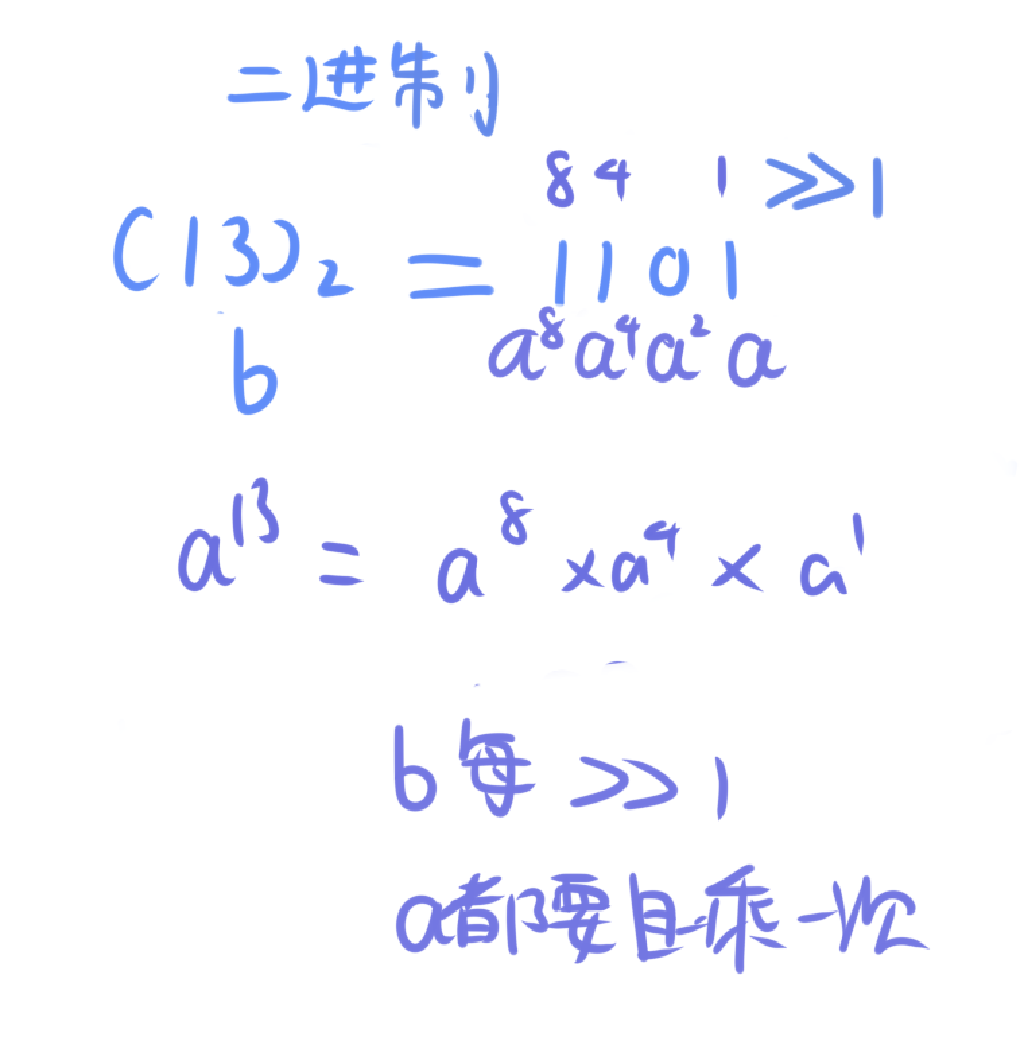 二进制
8 4 1 >>1
(13)₂ = 1101
b a⁸ a⁴ a² a
a¹³ = a⁸ × a⁴ × a¹
b每 >> 1
a都要自乘一次